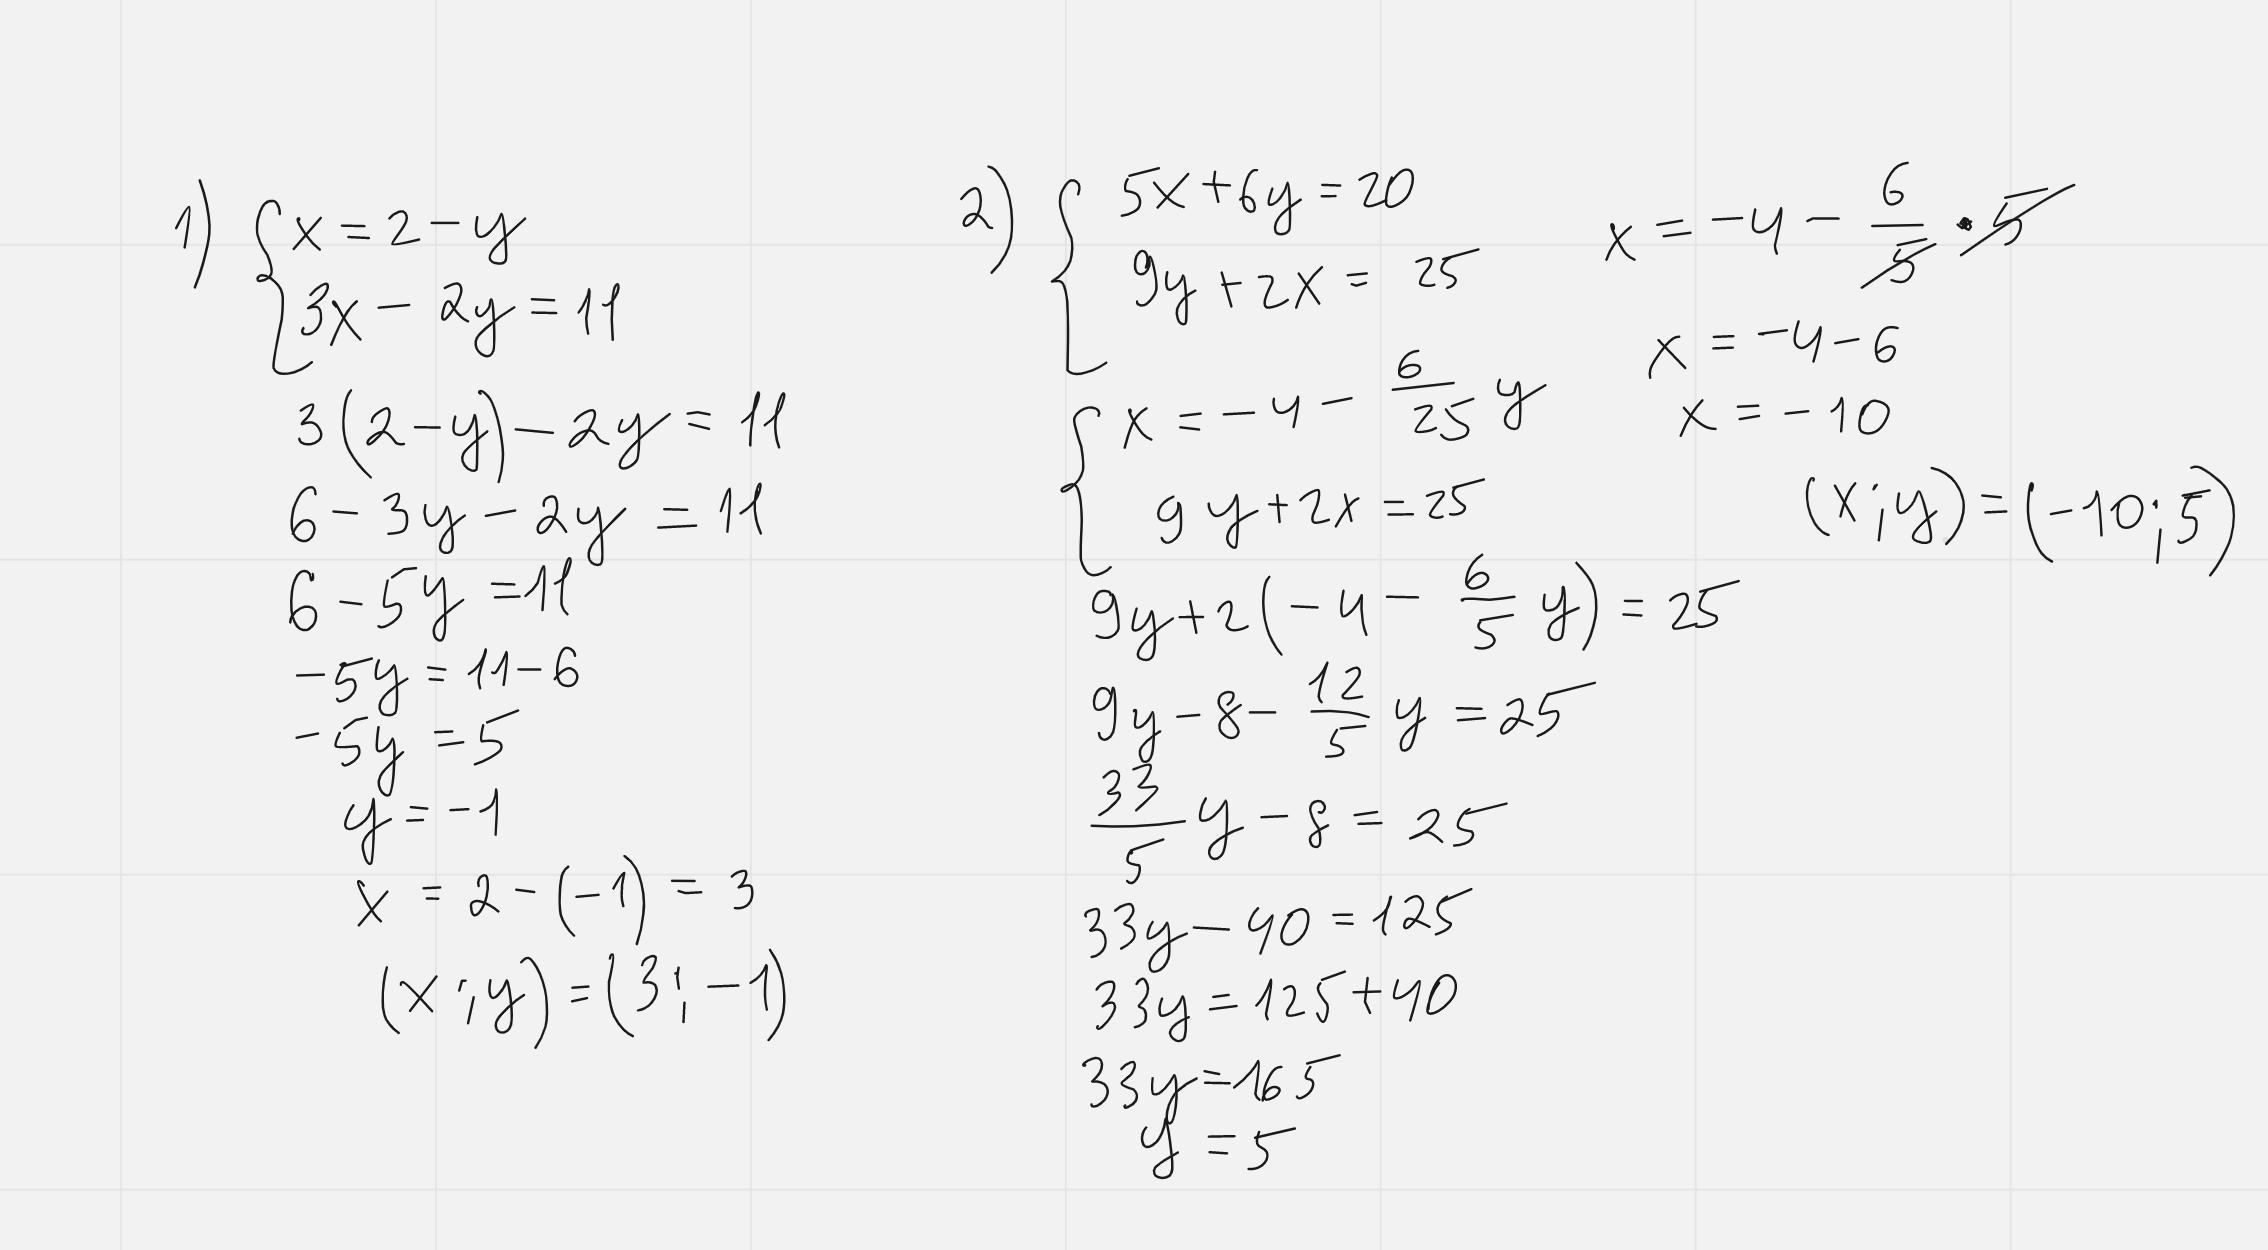 1) { x = 2 - y
3x - 2y = 11
3(2-y) - 2y = 11
6 - 3y - 2y = 11
6 - 5y = 11
-5y = 11-6
-5y = 5
y = -1
x = 2 - (-1) = 3
(x ; y) = (3 ; -1)
2) { 5x + 6y = 20
9y + 2x = 25
{ x = -4 - 6/25 y
9y + 2x = 25
9y + 2(-4 - 6/5 y) = 25
9y - 8 - 12/5 y = 25
33/5 y - 8 = 25
33y - 40 = 125
33y = 125 + 40
33y = 165
y = 5
x = -4 - 6/5 · 5
x = -4 - 6
x = -10
(x ; y) = (-10 ; 5)